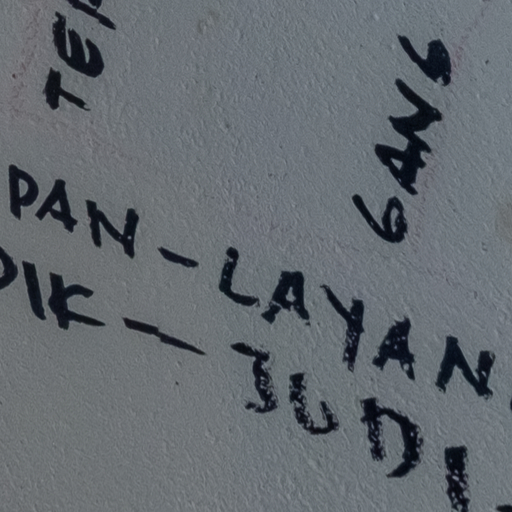 GANG
PAN-LAYAN
DIK-JUDI-